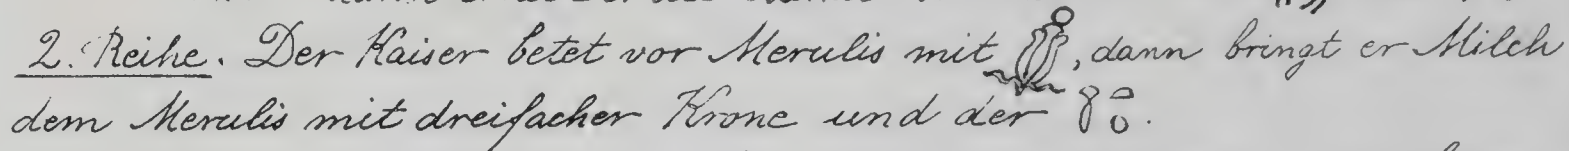 2. Reihe. Der Kaiser betet vor Merulis mit , dann bringt er Milch
dem Merulis mit dreifacher Krone und der .